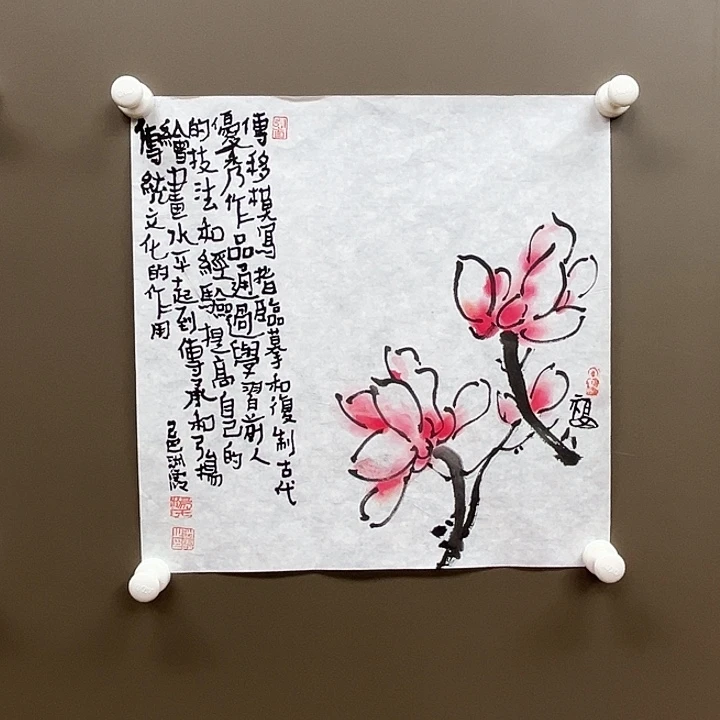 傳移模寫指臨摹和復制古代
優秀作品通過學習前人
的技法和經驗提高自己的
繪畫水平起到傳承和弘揚
傳統文化的作用